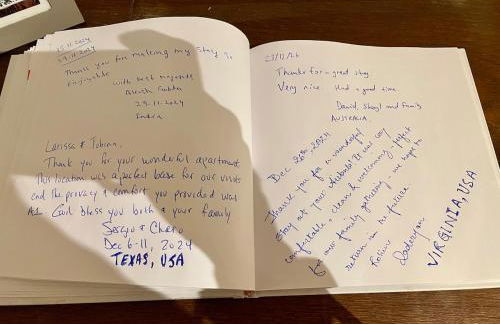 25.11.2024
29.11.2024
Thank you for making my stay so
enjoyable
with best regards
29.11.2024
India
Larissa & Tobias,
Thank you for your wonderful apartment.
This location was a perfect base for our visits
and the privacy & comfort you provided was
A1. God bless you both & your family
Sergio & Charo
Dec 6-11, 2024
TEXAS, USA
Thanks for a good stay
Very nice Had a good time
David, Sheryl and Family
AUSTRALIA.
Dec 20th, 2024
Thank you for a wonderful
stay at your It was very
comfortable, clean & welcoming. Perfect
for our family gathering - we hope to
return in the future.
VIRGINIA, USA